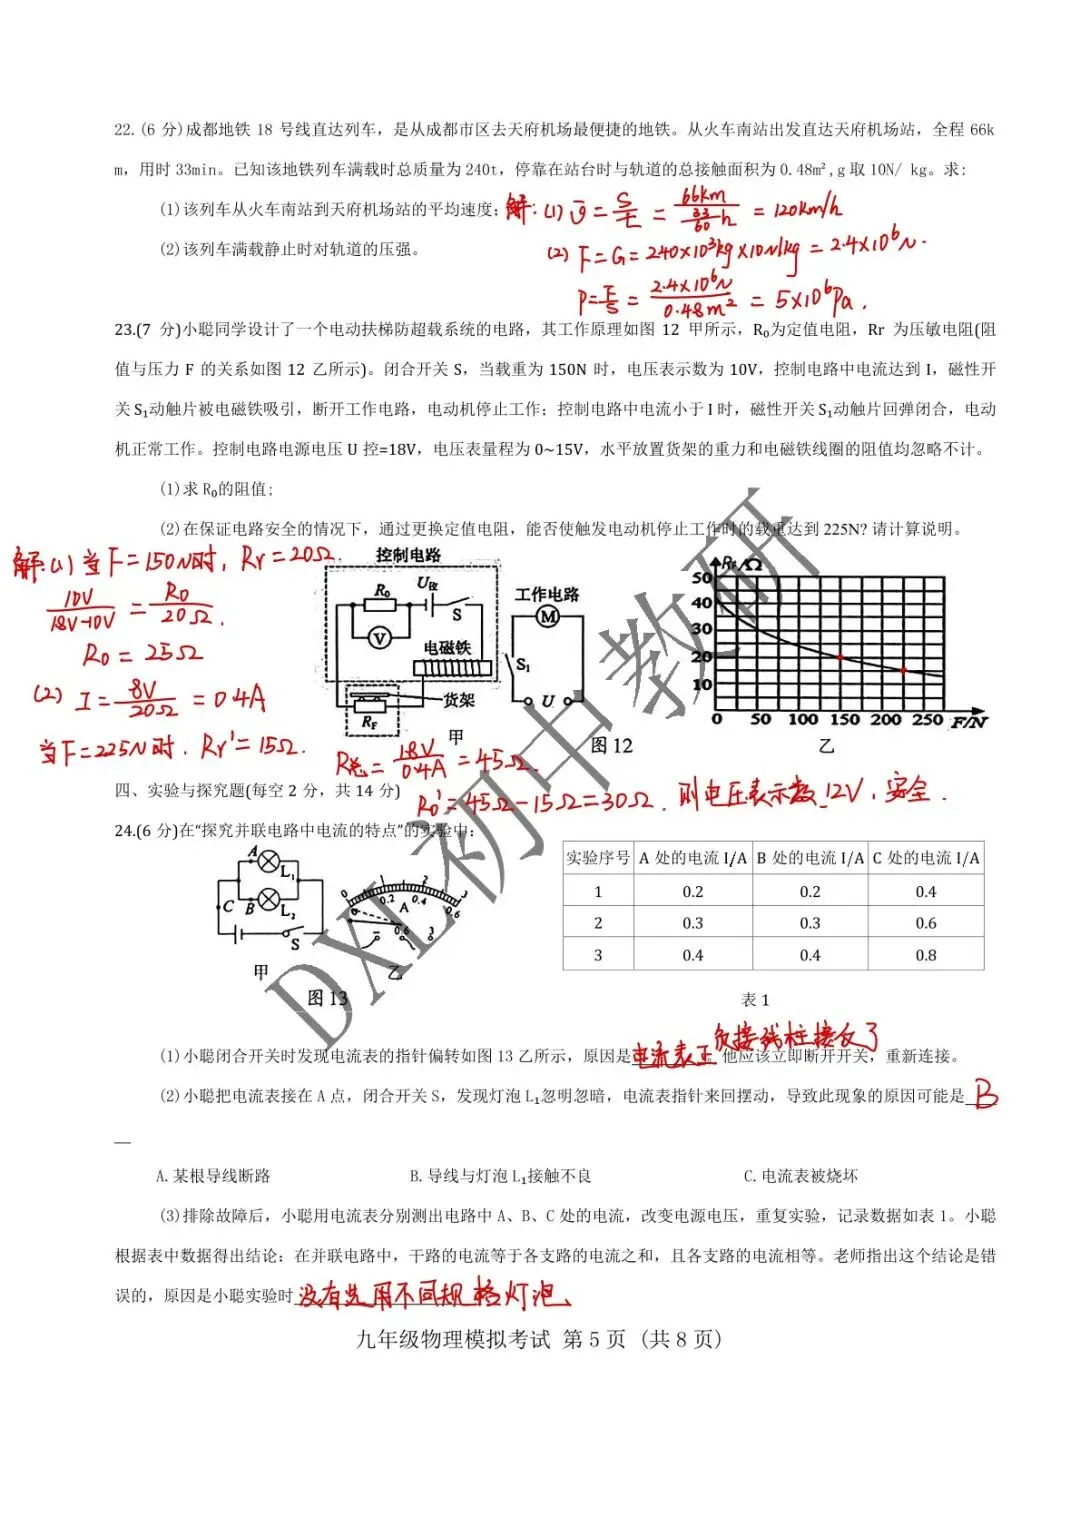 22.(6 分)成都地铁 18 号线直达列车，是从成都市区去天府机场最便捷的地铁。从火车南站出发直达天府机场站，全程 66k
m，用时 33min。已知该地铁列车满载时总质量为 240t，停靠在站台时与轨道的总接触面积为 0.48m²,g 取 10N/ kg。求:
(1)该列车从火车南站到天府机场站的平均速度；解：(1) v̄ = S/t = 66km / (33/60 h) = 120km/h
(2)该列车满载静止时对轨道的压强。
(2) F=G=240×10³kg×10N/kg=2.4×10⁶N.
P=F/S = 2.4×10⁶N / 0.48m² = 5×10⁶Pa.
23.(7 分)小聪同学设计了一个电动扶梯防超载系统的电路，其工作原理如图 12 甲所示，R₀为定值电阻，Rr 为压敏电阻(阻
值与压力 F 的关系如图 12 乙所示)。闭合开关 S，当载重为 150N 时，电压表示数为 10V，控制电路中电流达到 I，磁性开
关 S₁动触片被电磁铁吸引，断开工作电路，电动机停止工作；控制电路中电流小于 I 时，磁性开关 S₁动触片回弹闭合，电动
机正常工作。控制电路电源电压 U 控=18V，电压表量程为 0~15V，水平放置货架的重力和电磁铁线圈的阻值均忽略不计。
(1)求 R₀的阻值;
(2)在保证电路安全的情况下，通过更换定值电阻，能否使触发电动机停止工作时的载重达到 225N? 请计算说明。
解:(1) 当F=150N时, Rr=20Ω.
10V / 18V-10V = R₀ / 20Ω.
R₀=25Ω
(2) I = 8V / 20Ω = 0.4A
当F=225N时. Rr'=15Ω.
R总 = 18V / 0.4A = 45Ω.
R₀'=45Ω-15Ω=30Ω. 则电压表示数12V, 安全.
控制电路
R₀ U控 S
V
电磁铁
货架
R_F
甲
工作电路
M
S₁
U
图 12
R_F/Ω
50
40
30
20
10
0 50 100 150 200 250 F/N
乙
DXL初中教研
四、实验与探究题(每空 2 分，共 14 分)
24.(6 分)在“探究并联电路中电流的特点”的实验中:
A L₁
C B L₂
S
甲
0 1 2 3
0 0.2 0.4 0.6
A
- 0.6 3
乙
图 13
实验序号 A 处的电流 I/A B 处的电流 I/A C 处的电流 I/A
1 0.2 0.2 0.4
2 0.3 0.3 0.6
3 0.4 0.4 0.8
表 1
(1)小聪闭合开关时发现电流表的指针偏转如图 13 乙所示，原因是电流表正负接线柱接反了 他应该立即断开开关，重新连接。
(2)小聪把电流表接在 A 点，闭合开关 S，发现灯泡 L₁忽明忽暗，电流表指针来回摆动，导致此现象的原因可能是 B
A.某根导线断路 B.导线与灯泡 L₁接触不良 C.电流表被烧坏
(3)排除故障后，小聪用电流表分别测出电路中 A、B、C 处的电流，改变电源电压，重复实验，记录数据如表 1。小聪
根据表中数据得出结论：在并联电路中，干路的电流等于各支路的电流之和，且各支路的电流相等。老师指出这个结论是错
误的，原因是小聪实验时 没有选用不同规格灯泡
九年级物理模拟考试 第 5 页 (共 8 页)